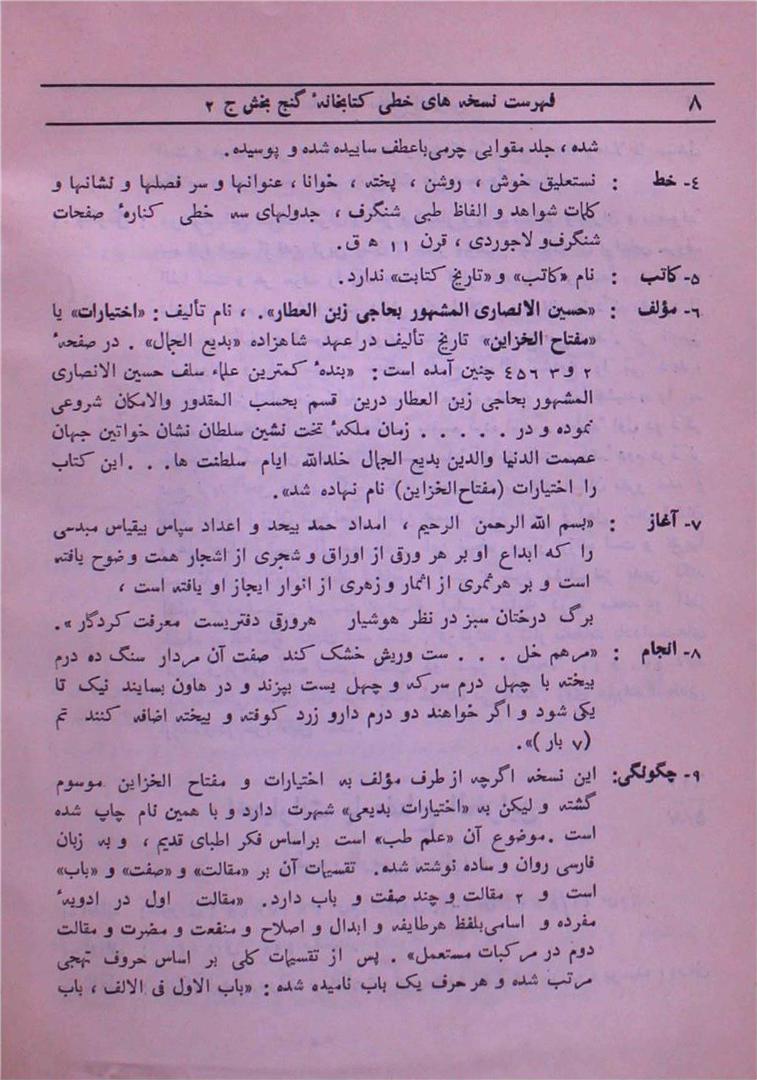 ۸ فهرست نسخه های خطی کتابخانهٔ گنج بخش ج ۲
شده ، جلد مقوایی چرمی باعطف ساییده شده و پوسیده .
٤- خط : نستعلیق خوش ، روشن ، پخته ، خوانا ، عنوانها و سر فصلها و نشانها و
کلمات شواهد و الفاظ طبی شنگرف ، جدولهای سه خطی کنارهٔ صفحات
شنگرف و لاجوردی ، قرن ۱۱ ه ق .
۵- کاتب : نام «کاتب» و «تاریخ کتابت» ندارد .
٦- مؤلف : «حسین الانصاری المشهور بحاجی زین العطار» . ، نام تألیف : «اختیارات» یا
«مفتاح الخزاین» تاریخ تألیف در عهد شاهزاده «بدیع الجمال» . در صفحهٔ
۲ و ۳ ٤٥٦ چنین آمده است : «بندهٔ کمترین علماء سلف حسین الانصاری
المشهور بحاجی زین العطار درین قسم بحسب المقدور والامکان شروعی
نموده و در . . . . . زمان ملکهٔ تخت نشین سلطان نشان خواتین جهان
عصمت الدنیا والدین بدیع الجمال خلدالله ایام سلطنت ها . . . این کتاب
را اختیارات (مفتاح الخزاین) نام نهاده شد» .
۷- آغاز : «بسم الله الرحمن الرحیم ، امداد حمد بیحد و اعداد سپاس بیقیاس مبدسی
را که ابداع او بر هر ورقی از اوراق و شجری از اشجار همت وضوح یافته
است و بر هرثمری از اثمار و زهری از انوار ایجاز او یافته است ،
برگ درختان سبز در نظر هوشیار هرورقی دفتریست معرفت کردگار» .
۸- انجام : «مرهم خل . . . ست وریش خشک کند صفت آن مردار سنگ ده درم
بیخته با چهل درم سرکه و چهل یست بپزند و در هاون بسایند نیک تا
یکی شود و اگر خواهند دو درم دارو زرد کوفته و بیخته اضافه کنند تم
(۷ بار)» .
۹- چگونگی : این نسخه اگرچه از طرف مؤلف به اختیارات و مفتاح الخزاین موسوم
گشته و لیکن به «اختیارات بدیعی» شهرت دارد و با همین نام چاپ شده
است . موضوع آن «علم طب» است براساس فکر اطبای قدیم ، و به زبان
فارسی روان و ساده نوشته شده . تقسیمات آن بر «مقالت» و «صفت» و «باب»
است و ۲ مقالت و چند صفت و باب دارد . «مقالت اول در ادویهٔ
مفرده و اسامی بلفظ هرطایفه و ابدال و اصلاح و منفعت و مضرت و مقالت
دوم در مرکبات مستعمل» . پس از تقسیمات کلی بر اساس حروف تهجی
مرتب شده و هر حرف یک باب نامیده شده : «باب الاول فی الالف ، باب